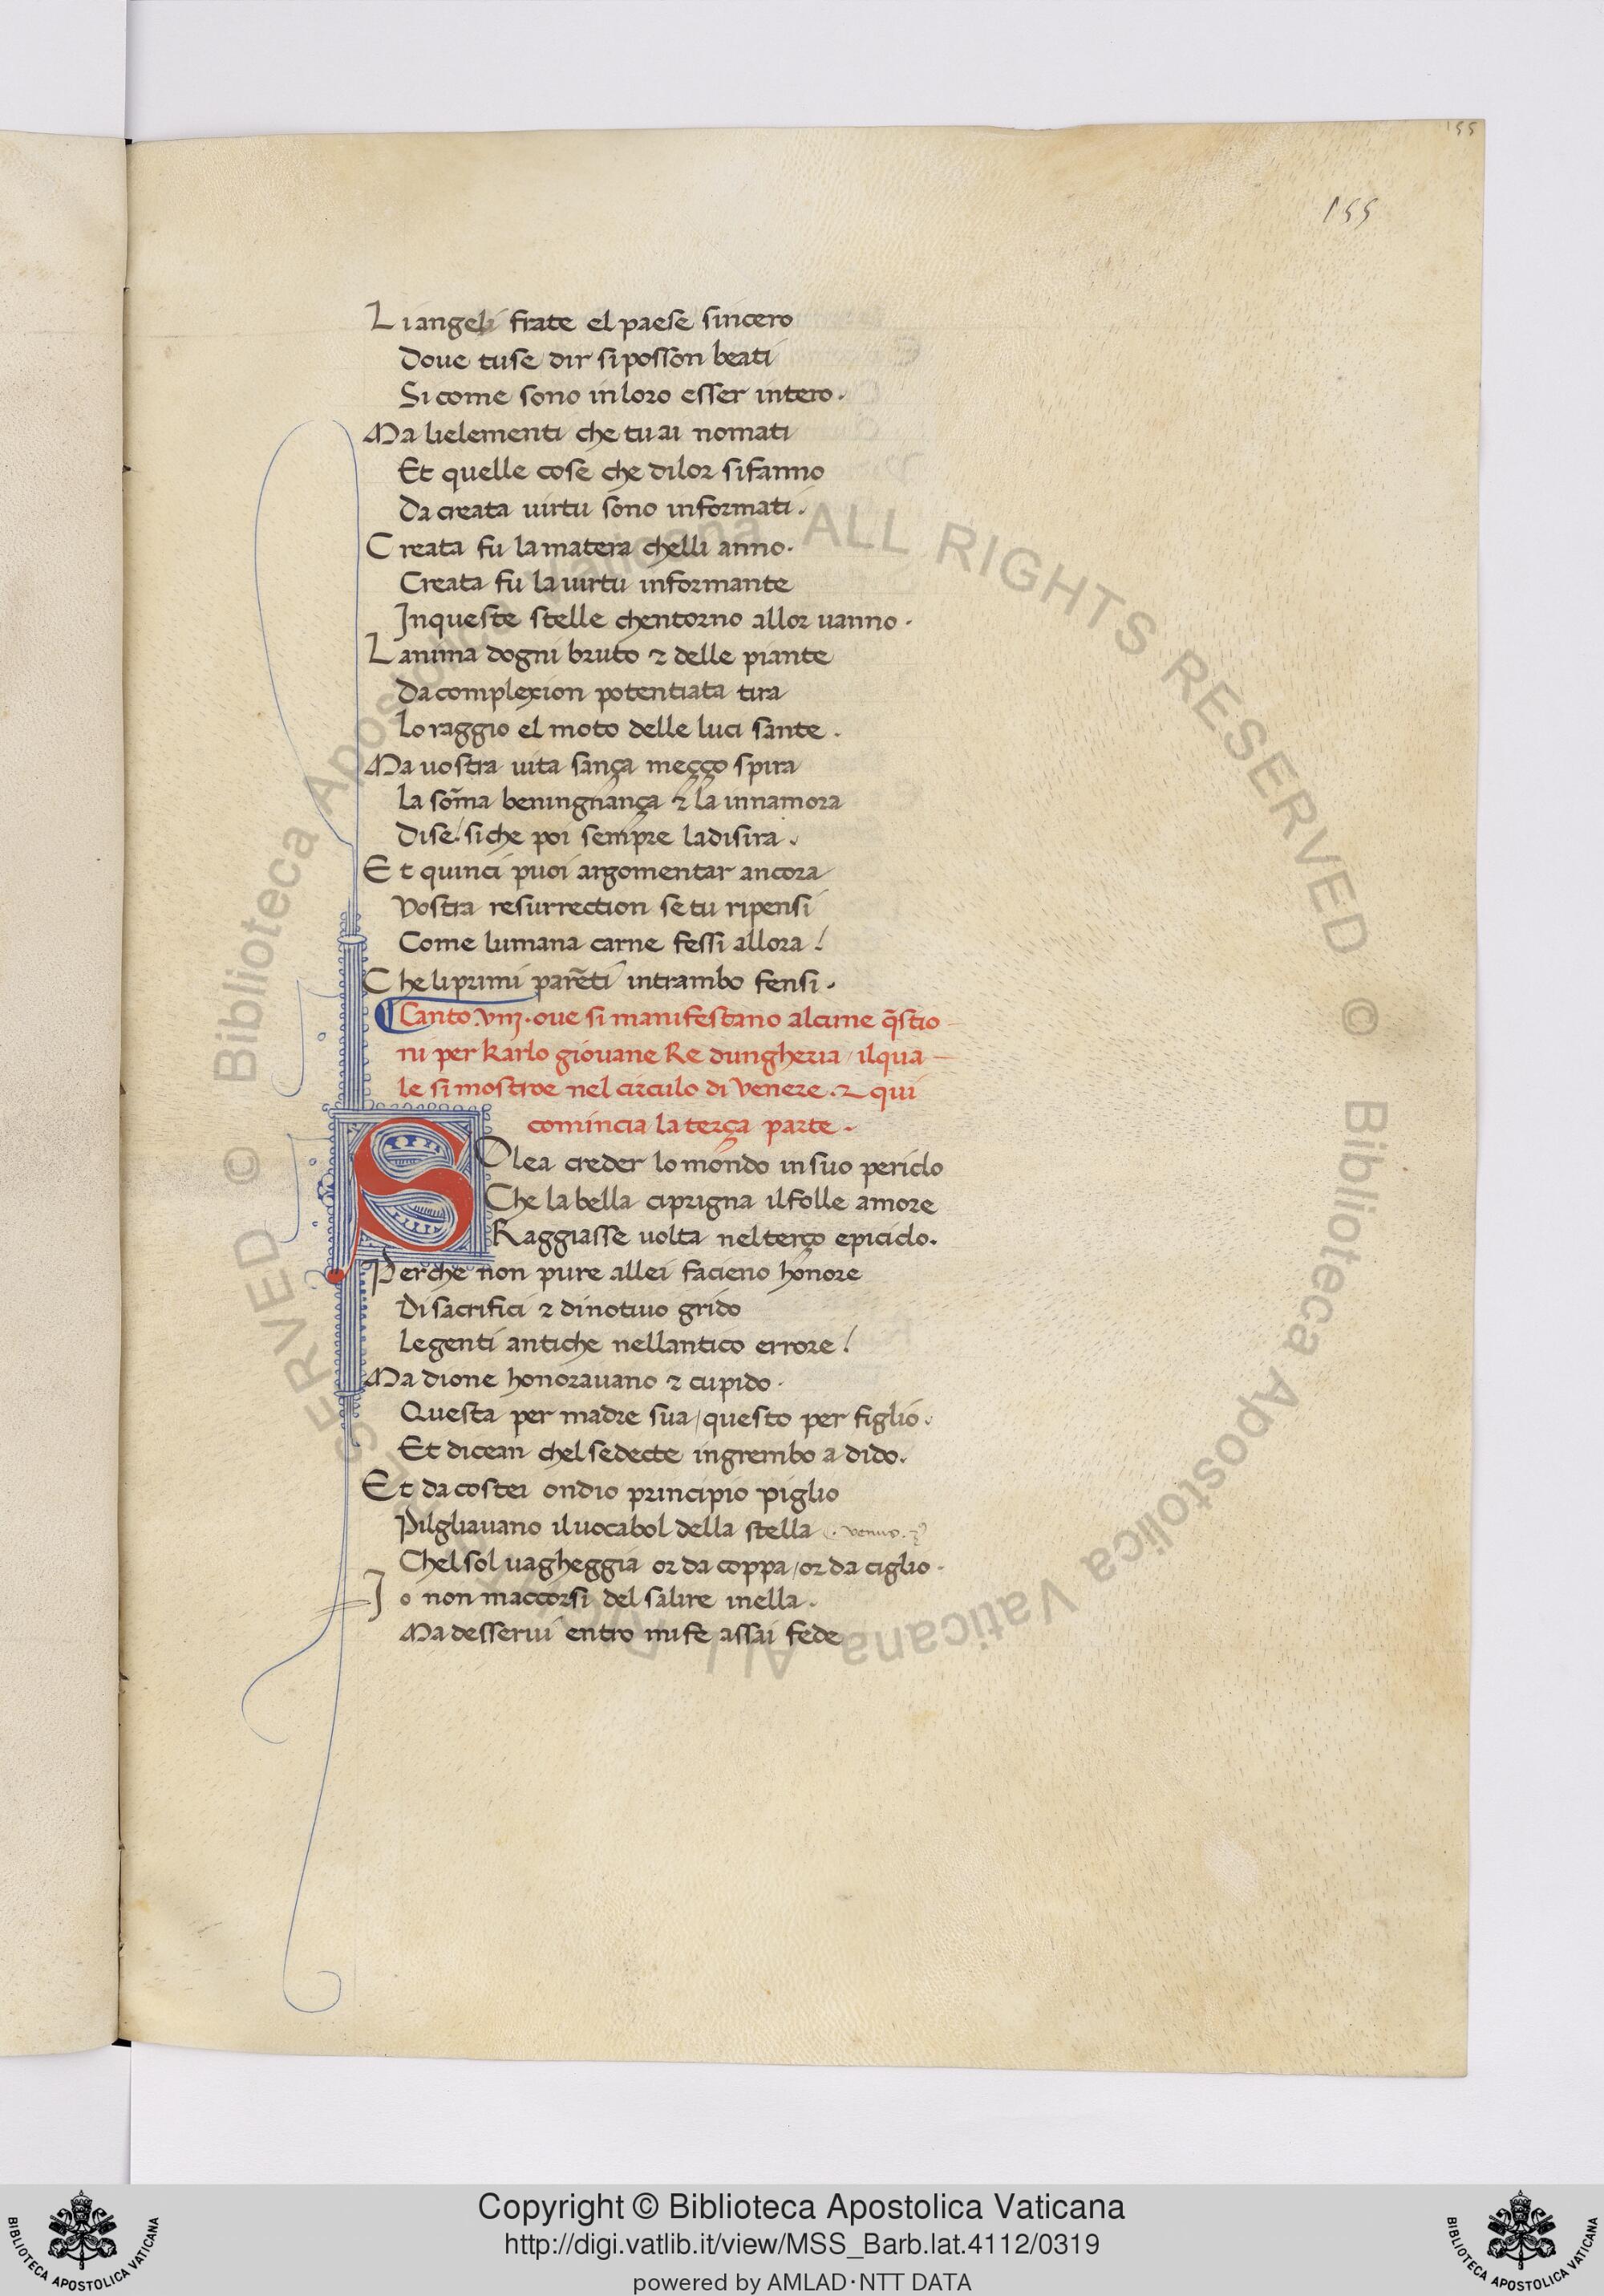 155
155
Li angeli frate el paese sincero
Doue tuse dir siposson beati
Si come sono inloro esser intero.
Ma lielementi che tu ai nomati
Et quelle cose che dilor sifanno
Da creata uirtu sono informati.
Creata fu lamatera chelli anno.
Creata fu la uirtu informante
Inqueste stelle chentorno allor uanno.
Lanima dogni bruto ⁊ delle piante
Dacomplexion potentiata tira
Lo raggio el moto delle luci sante.
Ma uostra uita sança meçço spira
La som̃a beningnança ⁊ la innamora
Dise/siche poi sempre ladisira.
Et quinci puoi argomentar ancora
Vostra resurrection se tu ripensi
Come lumana carne fessi allora/
Che liprimi parẽti intrambo fensi.
Canto.viij.oue si manifestano alcune q̃stio
ni per Karlo giouane Re dungheria/ilqua
le si mostroe nel circulo di Venere.⁊ qui
comincia la terça parte.
SOlea creder lo mondo insuo periclo
Che la bella ciprigna ilfolle amore
Raggiasse uolta nelterço epiciclo.
Perche non pure allei facieno honore
Di sacrifici ⁊ dinotiuo grido
Legenti antiche nellantico errore/
Ma dione honorauano ⁊ cupido.
Questa per madre sua/questo per figlio.
Et dicean chel sedecte ingrembo a dido.
Et da costei ondio principio piglio
Pilgliauano iluocabol della stella .venus.
Chel sol uagheggia or da coppa/or da ciglio.
Io non maccorsi del salire inella.
Ma desserui entro mi fe assai fede
© Biblioteca Apostolica Vaticana ALL RIGHTS RESERVED © Biblioteca Apostolica Vaticana ALL RIGHTS RESERVED
Copyright © Biblioteca Apostolica Vaticana
http://digi.vatlib.it/view/MSS_Barb.lat.4112/0319
powered by AMLAD·NTT DATA
BIBLIOTECA APOSTOLICA VATICANA
BIBLIOTECA APOSTOLICA VATICANA